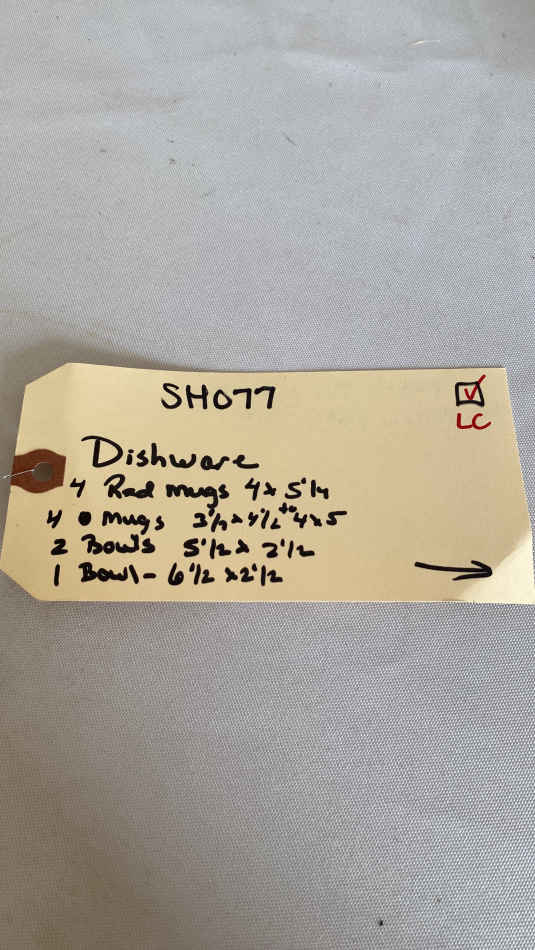 SH077
LC
Dishware
4 Red mugs 4 x 5 1/4
4 mugs 3 1/2 x 4 1/2 to 4 x 5
2 Bowls 5 1/2 x 2 1/2
1 Bowl - 6 1/2 x 2 1/2